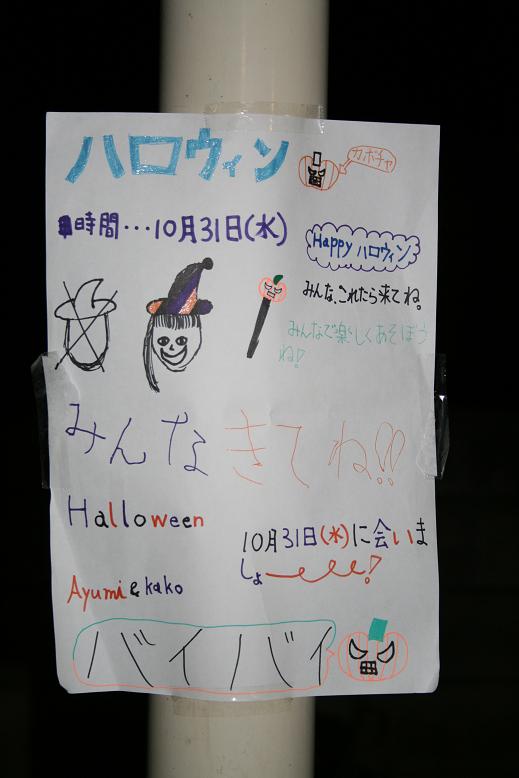 ハロウィン
カボチャ
時間・・・10月31日(水)
Happy ハロウィン
みんな、これたら来てね。
みんなで楽しくあそぼう
ね!
みんな きてね!!
Halloween
10月31日(水)に会いま
しょーーー!
Ayumi & kako
バイバイ